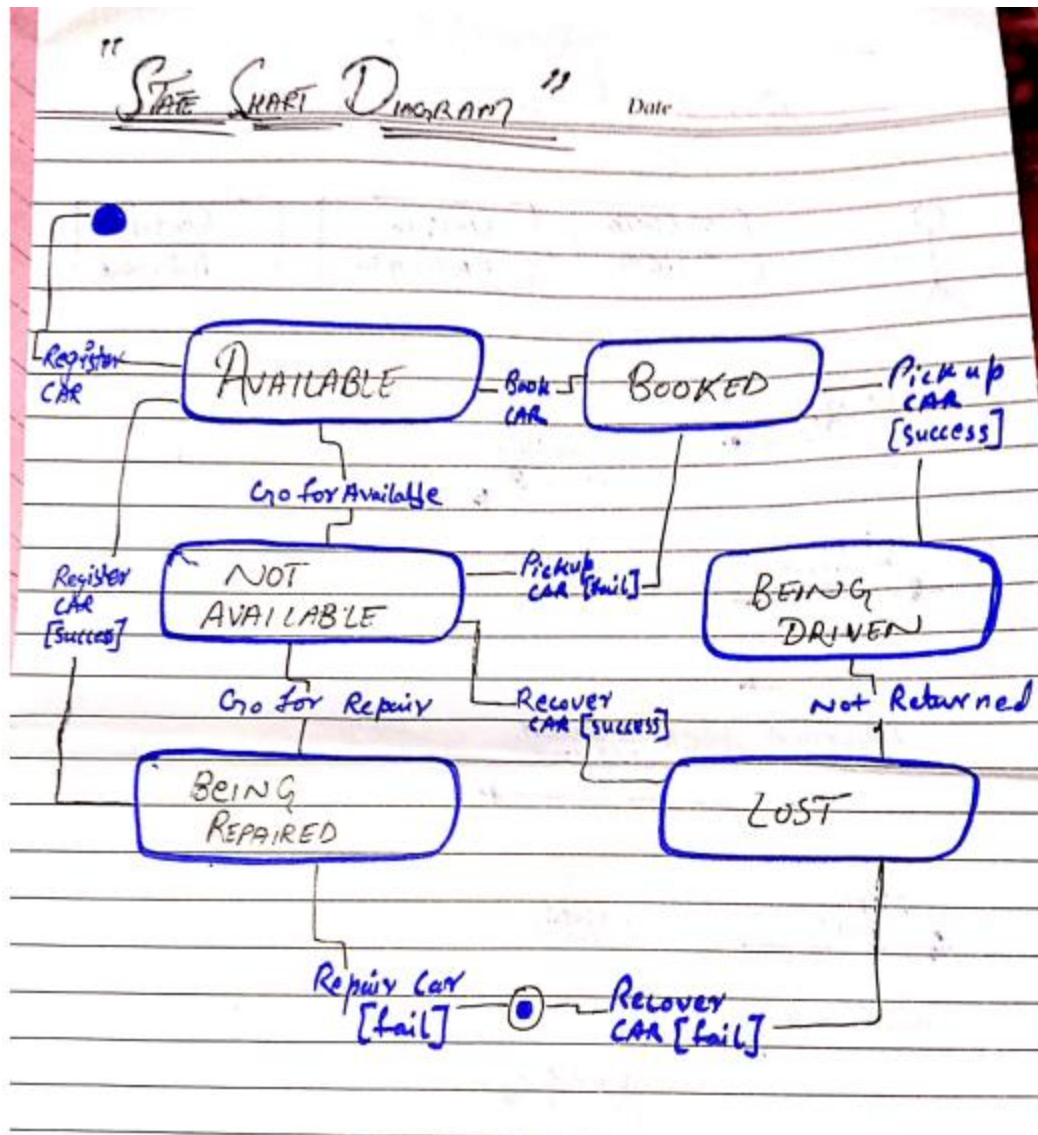 "STATE SHART DIAGRAM"
Date
Register
CAR
AVAILABLE
Book
CAR
BOOKED
Pick up
CAR
[success]
Go for Available
Register
CAR
[success]
NOT
AVAILABLE
Pickup
CAR [fail]
BEING
DRIVEN
Go for Repair
Recover
CAR [success]
Not Returned
BEING
REPAIRED
LOST
Repair Car
[fail]
Recover
CAR [fail]